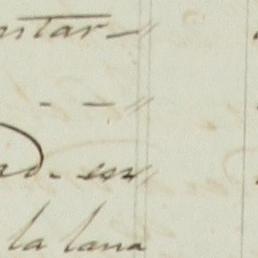 ntar — "
- - "
nd. en "
la lana